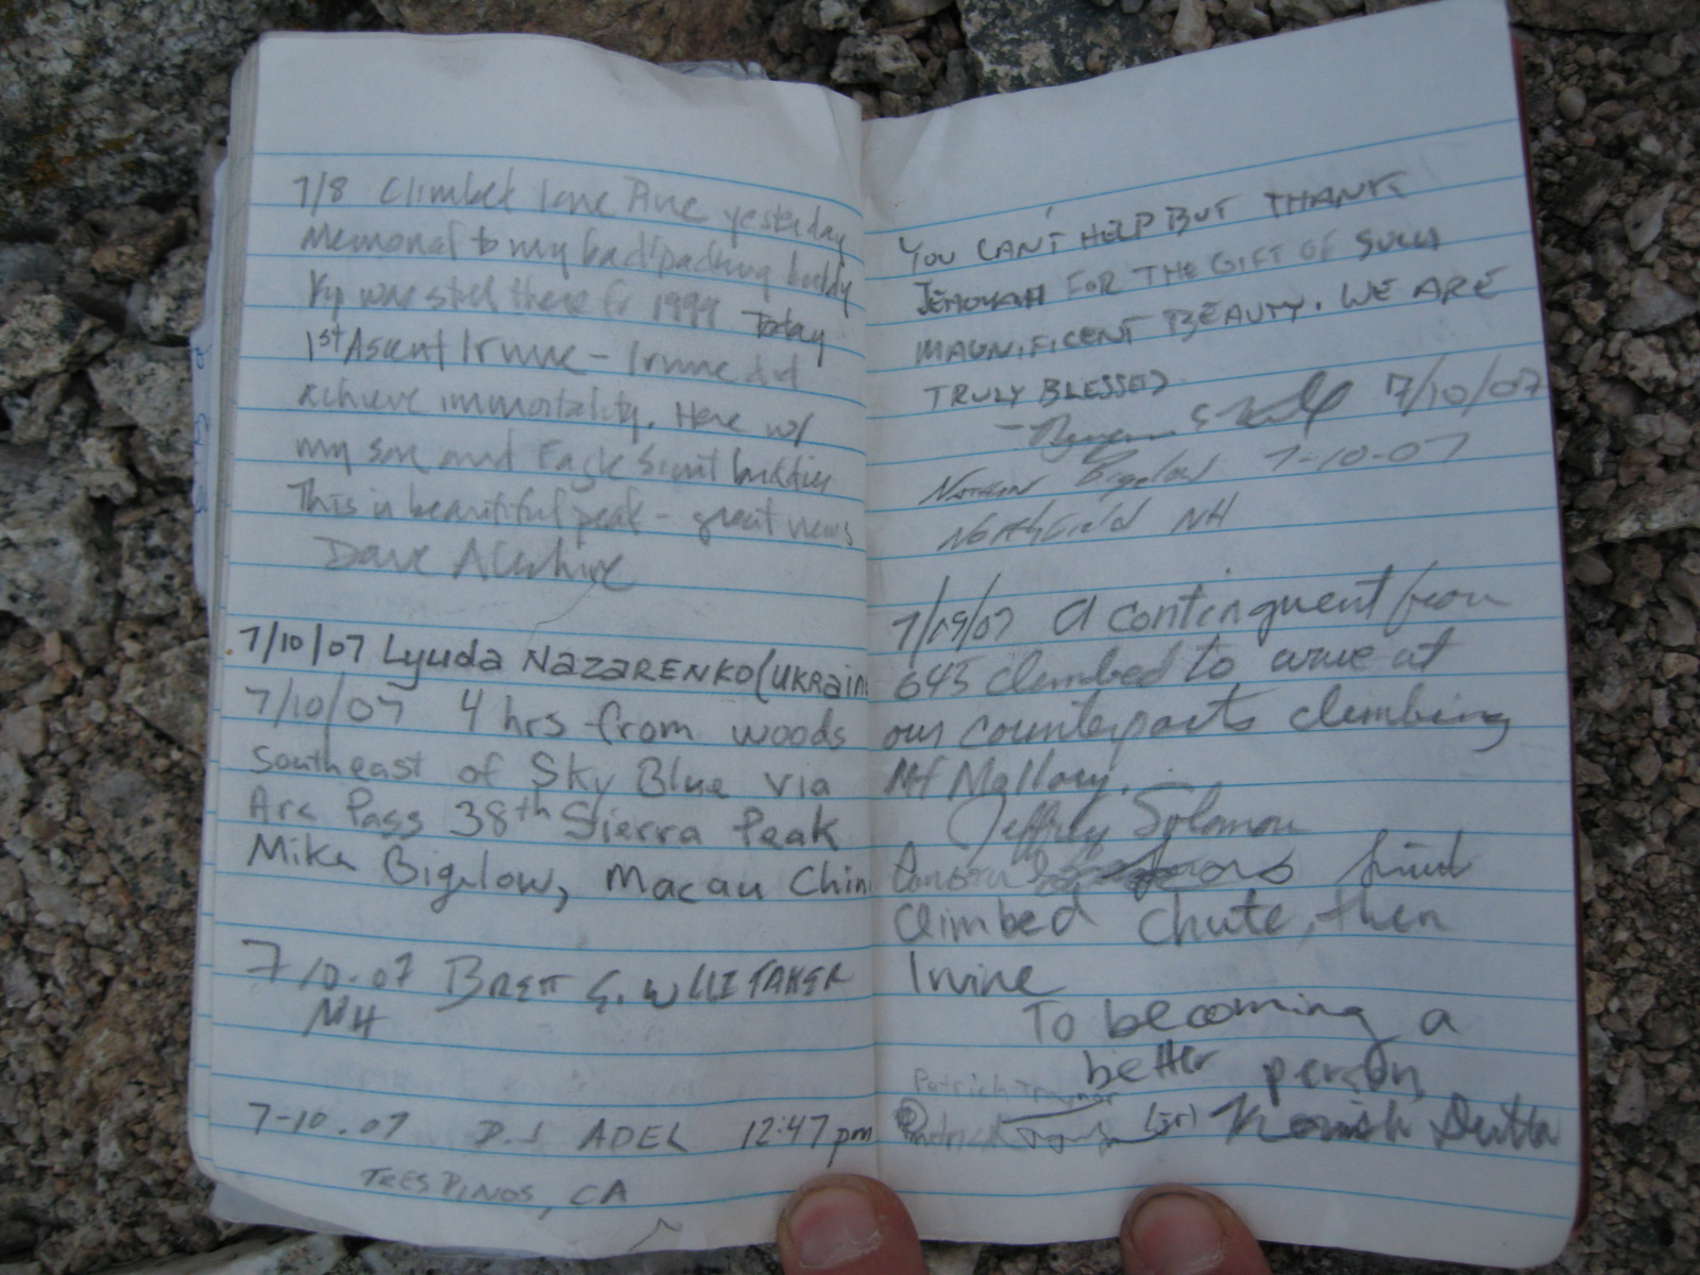 7/8 Climbed Lone Pine yesterday
Memorial to my backpacking buddy
was still there fr 1999 Today
1st Ascent Irvine - Irvine did
achieve immortality. Here w/
my son and Eagle Scout buddies
This is beautiful peak - great views
Dave
7/10/07 Lyuda NAZARENKO (UKRAin
7/10/07 4 hrs from woods
Southeast of Sky Blue via
Arc Pass 38th Sierra Peak
Mike Bigelow, Macau Chin
7/10.07 BRETT S. WHITAKER
NH
7-10.07 D.J ADEL 12:47 pm
TRES PINOS, CA
YOU CAN'T HELP BUT THANK
JEHOVAH FOR THE GIFT OF SUCH
MAGNIFICENT BEAUTY. WE ARE
TRULY BLESSED
7/10/07
Nathan Bigelow 7-10-07
Northfield NH
7/19/07 A continguent from
645 climbed to wave at
our counterparts climbing
Mt Mallory.
Jeffrey Solomon
climbed chute, then
Irvine
To becoming a
better person,
Patrick Traynor
Patrick (jr) Dutta